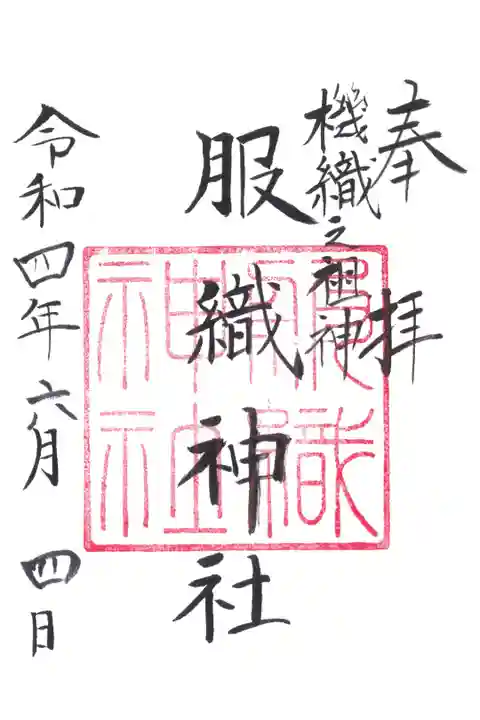 奉拝
機織之祖神
服織神社
令和四年六月四日